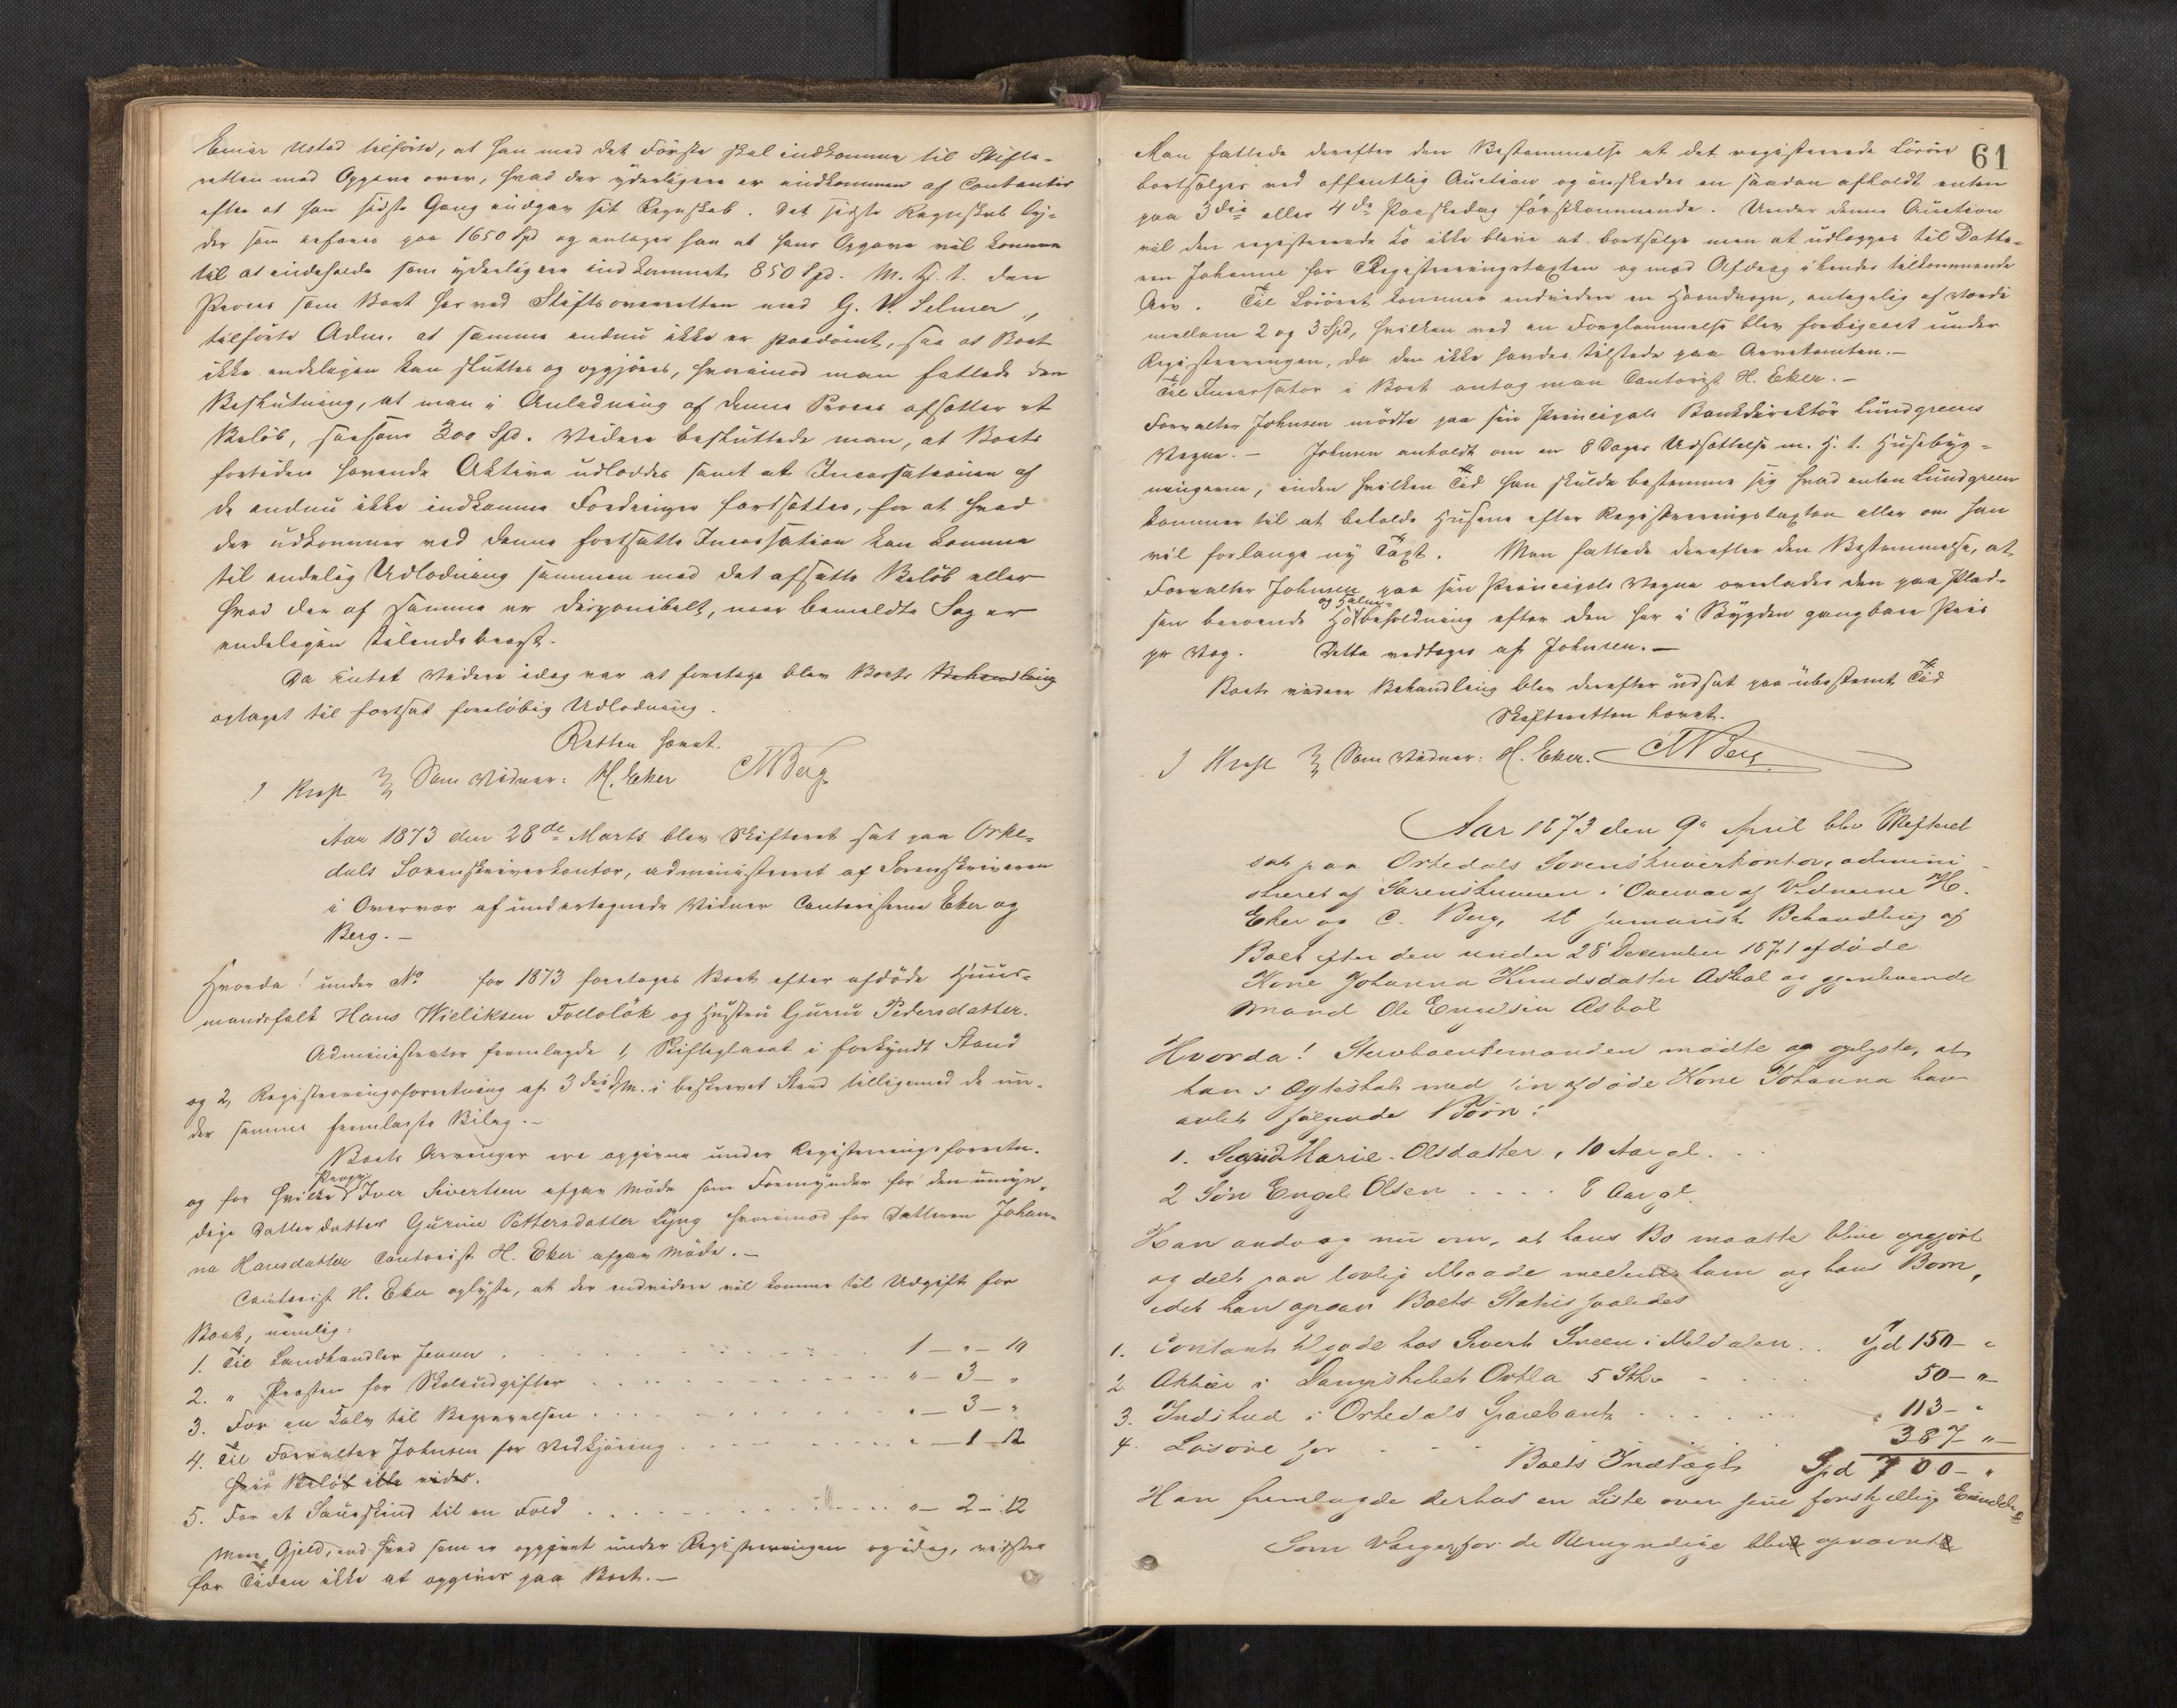 Einar Ustad tilførte, at han med det Første skal indkomme til Skifte-
retten med Opgave over, hvad der yderligere er indkommen af Contanter
efter at han sidste Gang indgav sit Regnskab. Det sidste Regnskab lyder
som anføres paa 1650 Spd og antager han at hans Opgave vil komme
til at indeholde som yderligere indkommet 850 Spd. M. H. t. den
Proces som Boet har ved Stiftsoverretten med G. V. Selmer,
tilførte Adm. at samme endnu ikke er paadømt, saa at Boet
ikke endeligen kan sluttes og opgjøres, hvorimod man fattede den
Beslutning, at man i Anledning af denne Proces afsætter et
Beløb, saasom 300 Spd. Videre besluttede man, at Boets
fortiden havende Aktiva udloddes samt at Incassationen af
de endnu ikke indkomne Fordringer fortsættes, for at hvad
der udkommer ved denne fortsatte Incassation kan komme
til endelig Udlodning sammen med det afsatte Beløb eller
hvad der af samme er disponibelt, naar bemeldte Sag er
endeligen tilendebragt.
Da intet Videre idag var at foretage blev Boets Behandling
optaget til fortsat foreløbig Udlodning.
Retten hævet.
J Krest Som Vidner: H. Eker CM Berg
Aar 1873 den 28de Marts blev Skifteret sat paa Orke-
dals Sorenskriverkontor, administreret af Sorenskriveren
i Overvær af undertegnede Vidner Contoristerne Eker og
Berg. —
Hvorda! under No for 1873 foretoges Boet efter afdøde Huus-
mandsfolk Hans Wieliksen Folloløk og Hustru Gurru Pedersdatter.
Administrator fremlagde 1, Skifteplacat i forkyndt Stand
og 2, Registreringsforretning af 3die d. M. i beskrevet Stand tilligemed de un-
der samme fremlagte Bilag. —
Boets Arvinger ere opgivne under Registreringsforretn.
og for hvilke Iver Sivertsen afgav Møde som Formynder for den umyn-
dige Datterdatter Gurine Pettersdatter Lyng hvorimod for Datteren Johan-
na Hansdatter Contorist H. Eker afgav Møde. —
Contorist H. Eker oplyste, at der endvidere vil komme til Udgift for
Boet, nemlig:
1. Til Landhandler Jensen . . . 1 — „ — 19
2. „ Præsten for Skoleudgifter . . . „ — 3 — „
3. For en Kalv til Begravelsen . . . „ — 3 — „
4. Til Forvalter Johnsen for Vedkjøring . . . „ — 1 — 12
hvis Beløb ikke vides.
5. For et Saueskind til en Fæld . . . „ — 2 — 12
Mere Gjeld, end hvad som er opgivet under Registreringen og idag, vidstes
for Tiden ikke at opgives paa Boet. —
61
Man fattede derefter den Bestemmelse at det registrerede Løsøre
bortsælges ved offentlig Auction og ønskedes en saadan afholdt enten
paa 3die eller 4de Paaskedag førstkommende. Under denne Auction
vil den registrerede Ko ikke blive at bortsælge men at udlægges til Datte-
ren Johanne for Registreringstaxten og mod Afdrag i hendes tilkommende
Arv. Til Løsøret kommer endvidere en Haandvogn, antagelig af Værdi
mellem 2 og 3 Spd, hvilken ved en Forglemmelse blev forbigaaet under
Registreringen, da den ikke havdes tilstede paa Arvetomten. —
Til Incassator i Boet antog man Cantorist H. Eker. —
Forvalter Johnsen mødte paa sin Principals Bankdirektør Lundgreens
Vegne. — Johnsen anholdt om en 8 Dages Udsættelse m. H. t. Husebyg-
ningerne, inden hvilken Tid han skulde bestemme sig hvad enten Lundgreen
kommer til at beholde Husene efter Registreringstaxten eller om han
vil forlange ny Taxt. Man fattede derefter den Bestemmelse, at
Forvalter Johnsen paa sin Principals Vegne overlades den paa Plad-
sen beroende Hø og Halm-beholdning efter den her i Bygden gangbare Pris
pr Vog. Dette vedtoges af Johnsen. —
Boets videre Behandling blev derefter udsat paa ubestemt Tid
Skifteretten hævet.
J Krest Som Vidner: H. Eker. CM Berg
Aar 1873 den 9de April blev Skifteret
sat paa Orkedals Sorenskriverkontor, admini-
streret af Sorenskriveren i Overvær af Vidnerne H.
Eker og C. Berg, til sumarisk Behandling af
Boet efter den under 28de December 1871 afdøde
Kone Johanna Knudsdatter Asbøl og gjenlevende
Mand Ole Engelsen Asbøl
Hvorda! Stervboenkemanden mødte og oplyste, at
han i Ægteskab med sin afdøde Kone Johanna har
avlet følgende Børn:
1. Sigrid Marie Olsdatter, 10 Aar gl. . .
2 Søn Engel Olsen . . . . 8 Aar gl.
Han androg nu om, at hans Bo maatte blive opgjort
og delt paa lovlig Maade mellem ham og hans Børn,
idet han opgav Boets Status saaledes
1. Contant tilgode hos Sivert Green i Meldalen . . Spd 150 — „
2. Aktier i Dampskibet Orkla 5 Stk. . . . 50 — „
3. Indskud i Orkedals Sparebank . . . . 113 — „
4. Løsøre for . . . 387 — „
Boets Indtægt Spd 700 — „
Han fremlagde derhos en Liste over sine forskjellige Eiendele
Som Værger for de Umyndige blev opnævnt